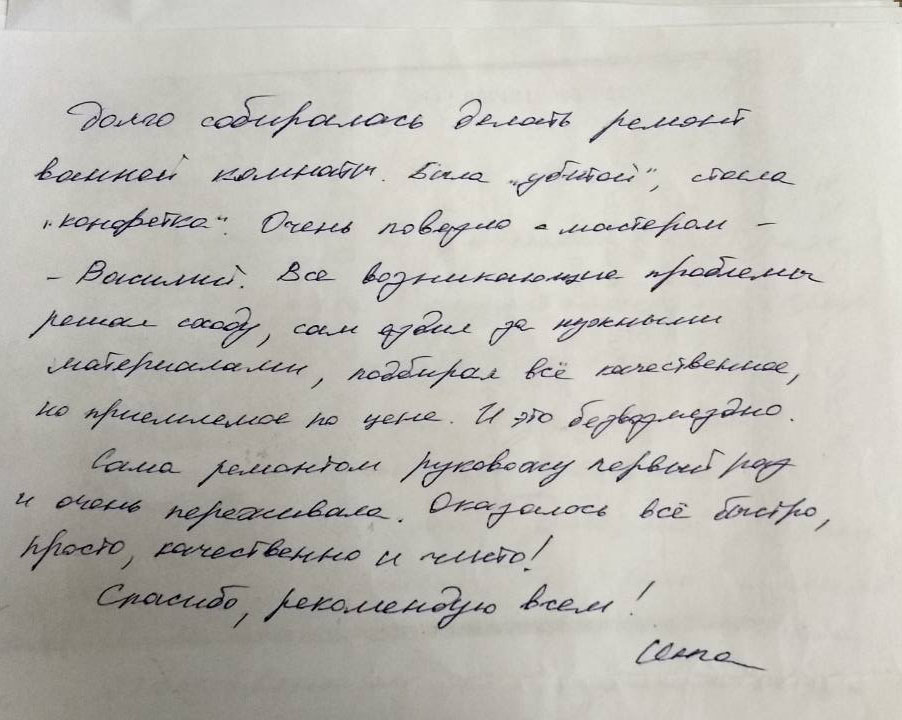 Долго собиралась делать ремонт
ванной комнаты. Была „убитой“, стала
„конфетка“. Очень повезло с мастером –
– Василий. Все возникающие проблемы
решал сходу, сам ездил за нужными
материалами, подбирал всё качественное,
но приемлемое по цене. И это безвозмездно.
Сама ремонтом руковожу первый раз
и очень переживала. Оказалось всё быстро,
просто, качественно и чисто!
Спасибо, рекомендую всем!